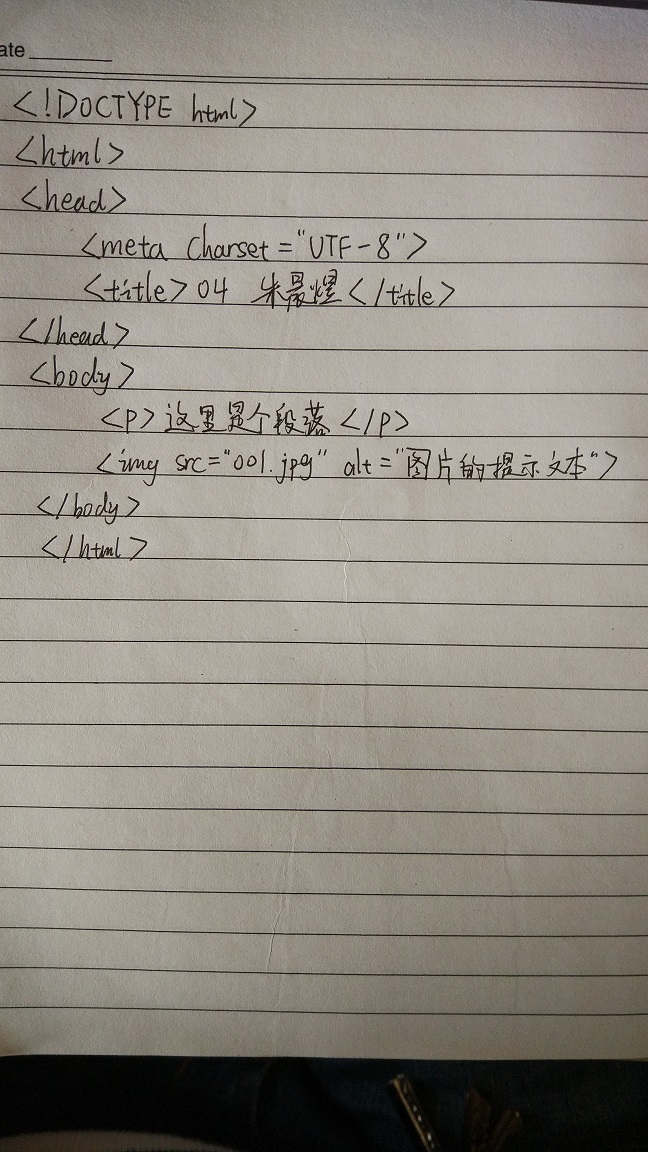 ate
<!DOCTYPE html>
<html>
<head>
<meta charset="UTF-8">
<title>04 朱晨煜</title>
</head>
<body>
<p>这里是个段落</p>
<img src="001.jpg" alt="图片的提示文本">
</body>
</html>